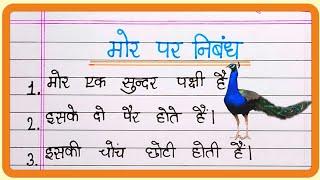 मोर पर निबंध
1. मोर एक सुन्दर पक्षी है
2. इसके दो पैर होते हैं।
3. इसकी चोंच छोटी होती हैं।